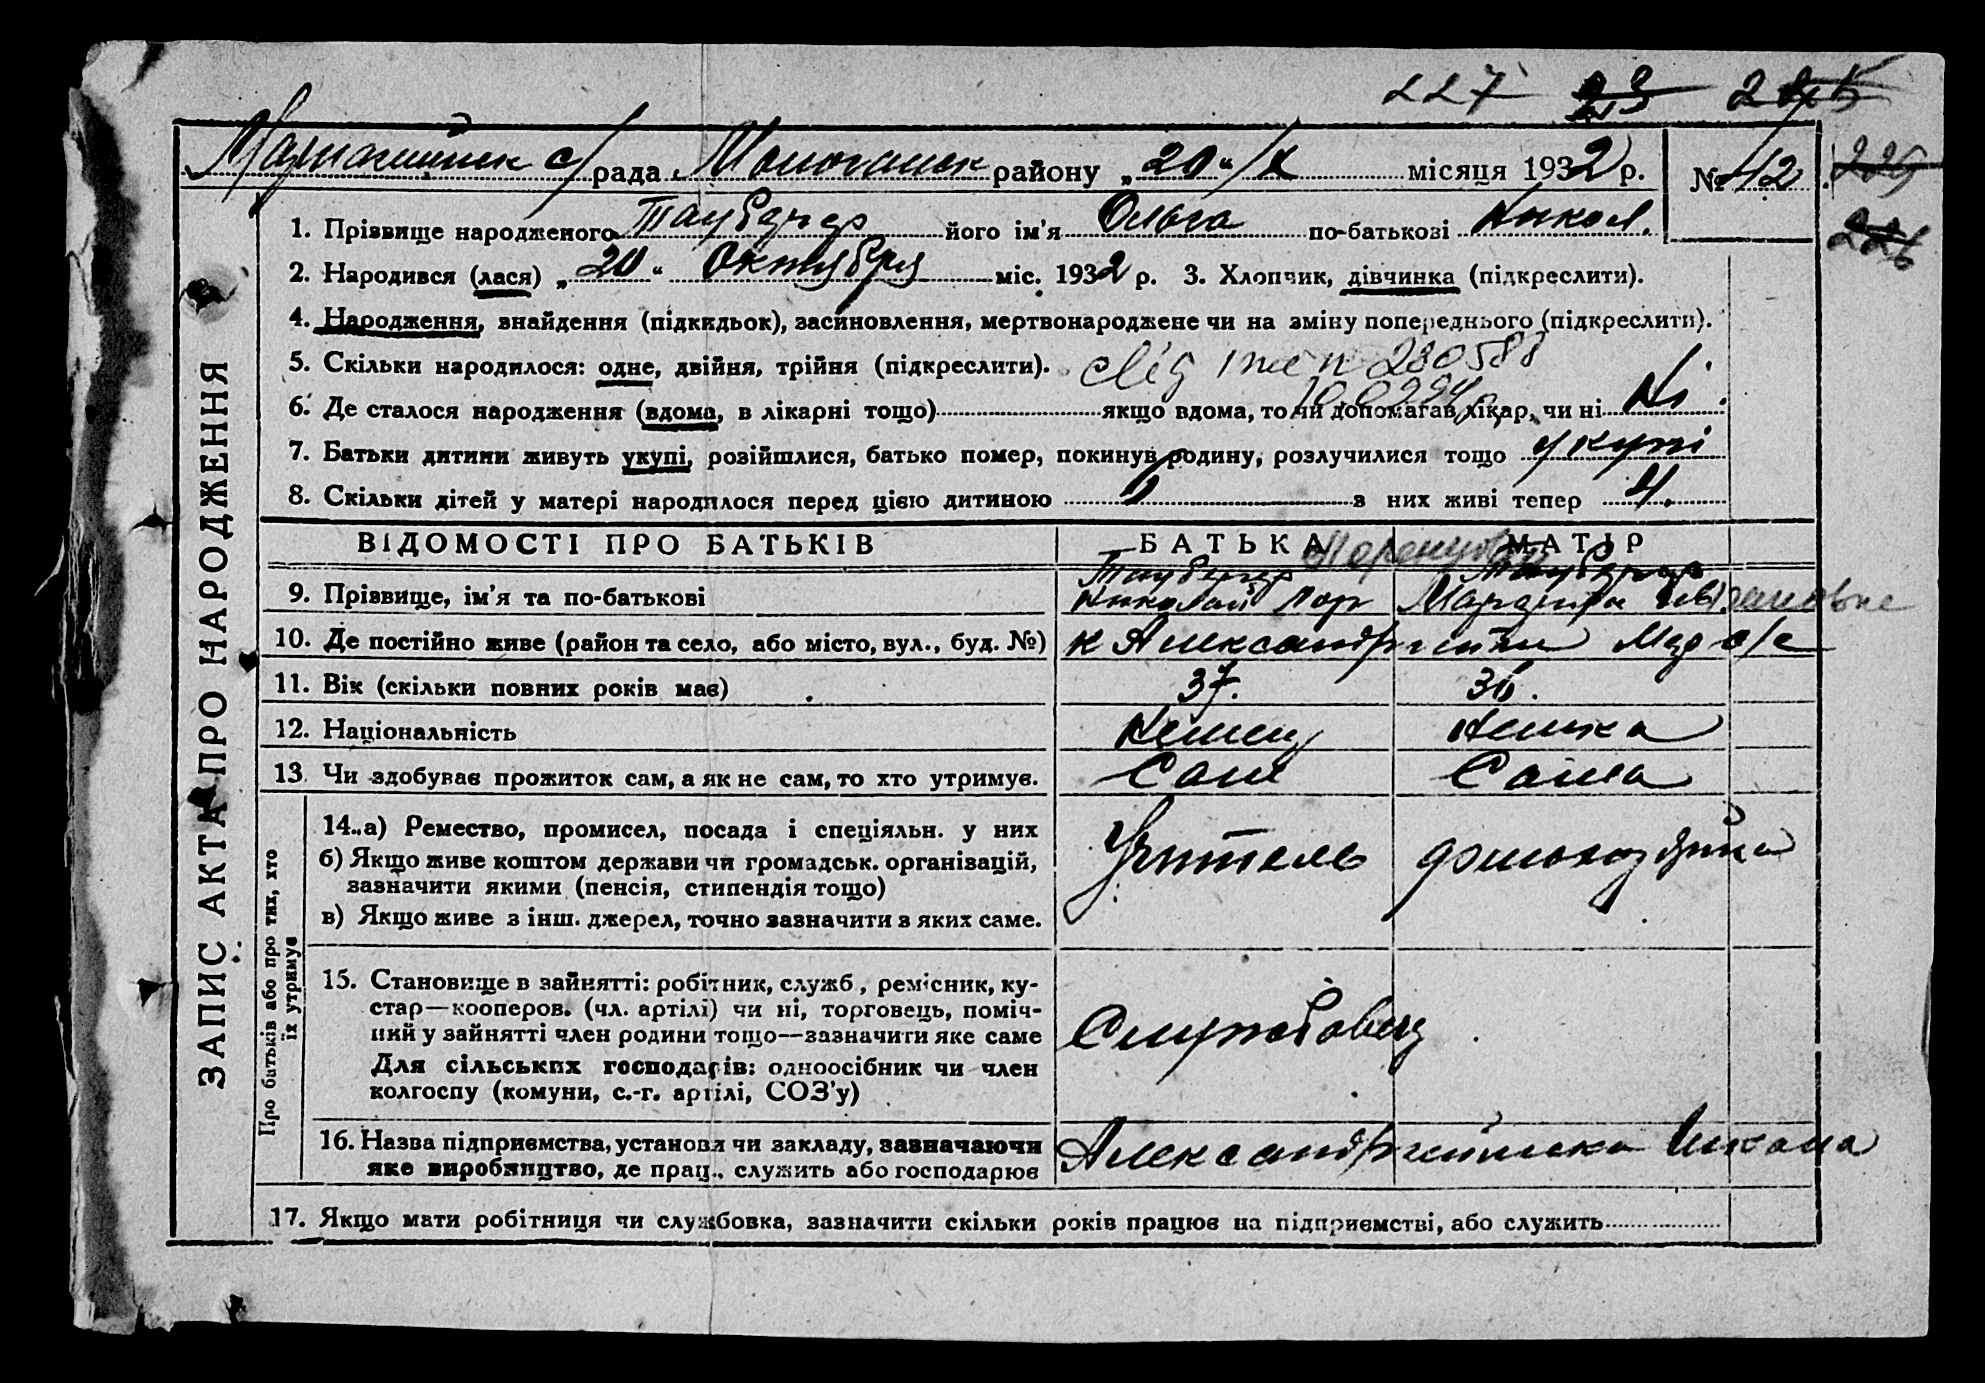 227
рада району „20“/X місяця 1932 р. № 42
1. Прізвище народженого Таубергер його ім'я Ольга по-батькові Никол.
2. Народився (лася) „20“ Октября міс. 1932 р. 3. Хлопчик, дівчинка (підкреслити).
226
4. Народження, знайдення (підкидьок), засиновлення, мертвонароджене чи на зміну попереднього (підкреслити).
5. Скільки народилося: одне, двійня, трійня (підкреслити).
6. Де сталося народження (вдома, в лікарні тощо) якщо вдома, то чи допомагав лікар, чи ні Ні.
7. Батьки дитини живуть укупі, розійшлися, батько помер, покинув родину, розлучилися тощо укупі
8. Скільки дітей у матері народилося перед цією дитиною з них живі тепер 4.
ЗАПИС АКТА ПРО НАРОДЖЕННЯ
ВІДОМОСТІ ПРО БАТЬКІВ БАТЬКА МАТІР
9. Прізвище, ім'я та по-батькові Таубергер Николай Таубергер
10. Де постійно живе (район та село, або місто, вул., буд. №) с/с
11. Вік (скільки повних років має) 37. 36.
12. Національність Немец Немка
13. Чи здобуває прожиток сам, а як не сам, то хто утримує. Сам Сама
Про батьків або про тих, хто їх утримує
14. а) Ремество, промисел, посада і спеціяльн. у них Учитель домохозяйка
б) Якщо живе коштом держави чи громадськ. організацій,
зазначити якими (пенсія, стипендія тощо)
в) Якщо живе з інш. джерел, точно зазначити з яких саме.
15. Становище в зайнятті: робітник, служб., ремісник, ку-
стар—кооперов. (чл. артілі) чи ні, торговець, поміч-
ний у зайнятті член родини тощо—зазначити яке саме Службовец
Для сільських господарів: одноосібник чи член
колгоспу (комуни, с.-г. артілі, СОЗ'у)
16. Назва підприємства, установи чи закладу, зазначаючи
яке виробництво, де прац., служить або господарює Александрийська Школа
17. Якщо мати робітниця чи службовка, зазначити скільки років працює на підприємстві, або служить